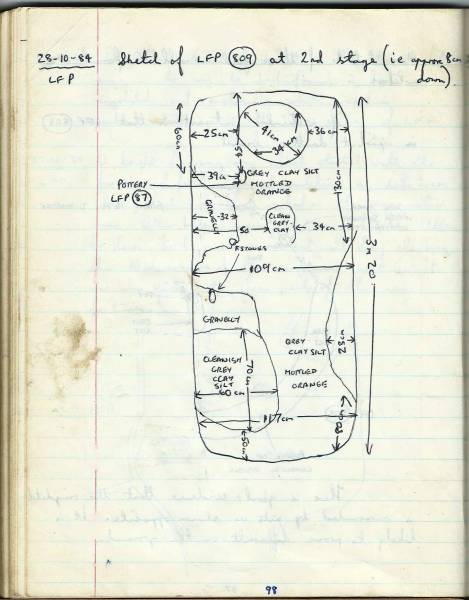 28-10-84 Sketch of LFP 809 at 2nd stage (i.e approx 8cm
LFP down)
60cm
25cm
41cm
34cm
36cm
45cm
39cm
GREY CLAY SILT
MOTTLED
ORANGE
130cm
POTTERY
LFP 87
GRAVELLY
32
CLEAN
GREY
CLAY
50
34cm
3m 20
STONES
109cm
GRAVELLY
GREY
CLAY SILT
MOTTLED
ORANGE
CLEANISH
GREY
CLAY
SILT
70cm
60cm
117cm
50cm
98